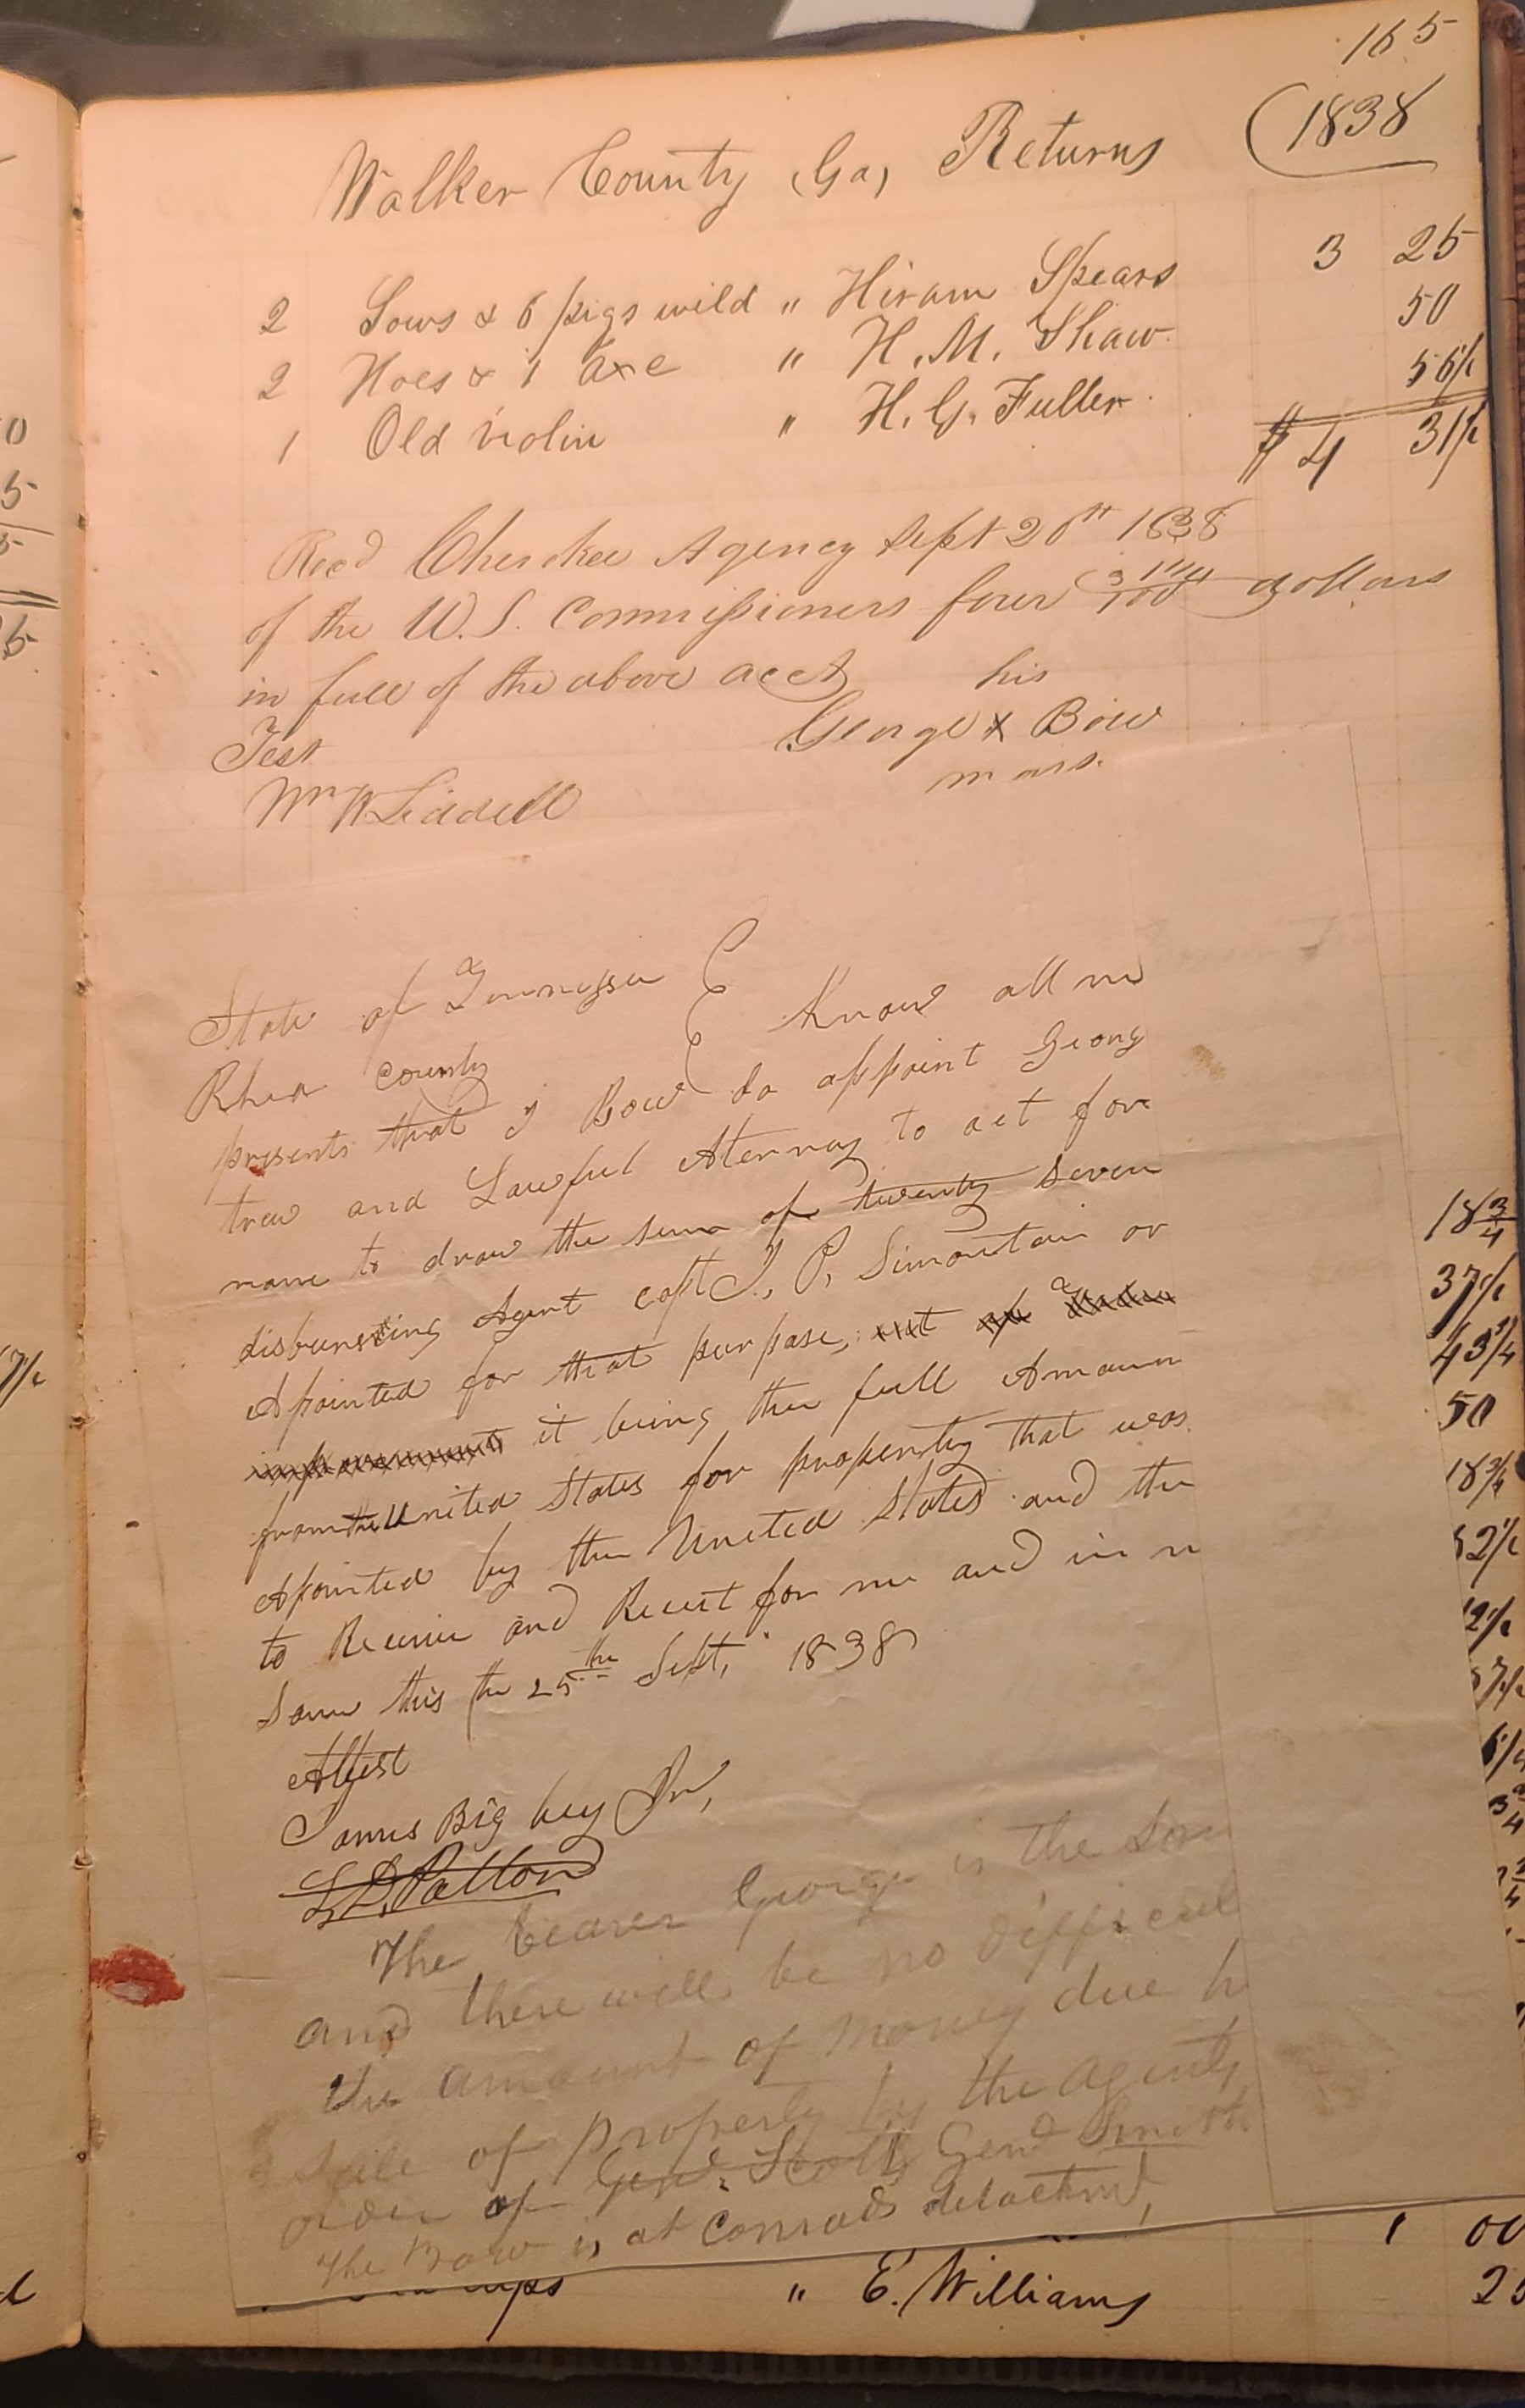 165
Walker County, Ga, Returns 1838
2 Sows & 6 pigs wild " Hiram Spears 3 25
2 Hoes & 1 axe " H. M. Shaw 50
1 Old violin " H. G. Fuller 56½
$4 31½
Recd Cherokee Agency Sept 26th 1838
of the U. S. Commissioners four dollars
in full of the above acct his
George x Bow
mark
Test
Wm W Liddell
State of Tennessee
Know all me
Rhea county
presents that I Bow do appoint Georg
trew and Lawful Aterney to act for
name to draw the sum of twenty seven
disbursting Agent capt J. P. Simontain or
Apointed for that purpase, it being the full Amaun
from the United States for propertey that was
Apointed by the United States and the
to Receive and Receet for me and in m
same this the 25the Sept, 1838
Attest
James Big bey Jr,
L D. Patton
The bearer George is the Son
and there will be no difficul
the amount of money due h
Sale of property by the agents
order of Genl. Scott Genl Smith
The Bow is at Conrads detachmt,
18¾
37½
43¾
50
18¾
2½
cups " E. Williams 1 00